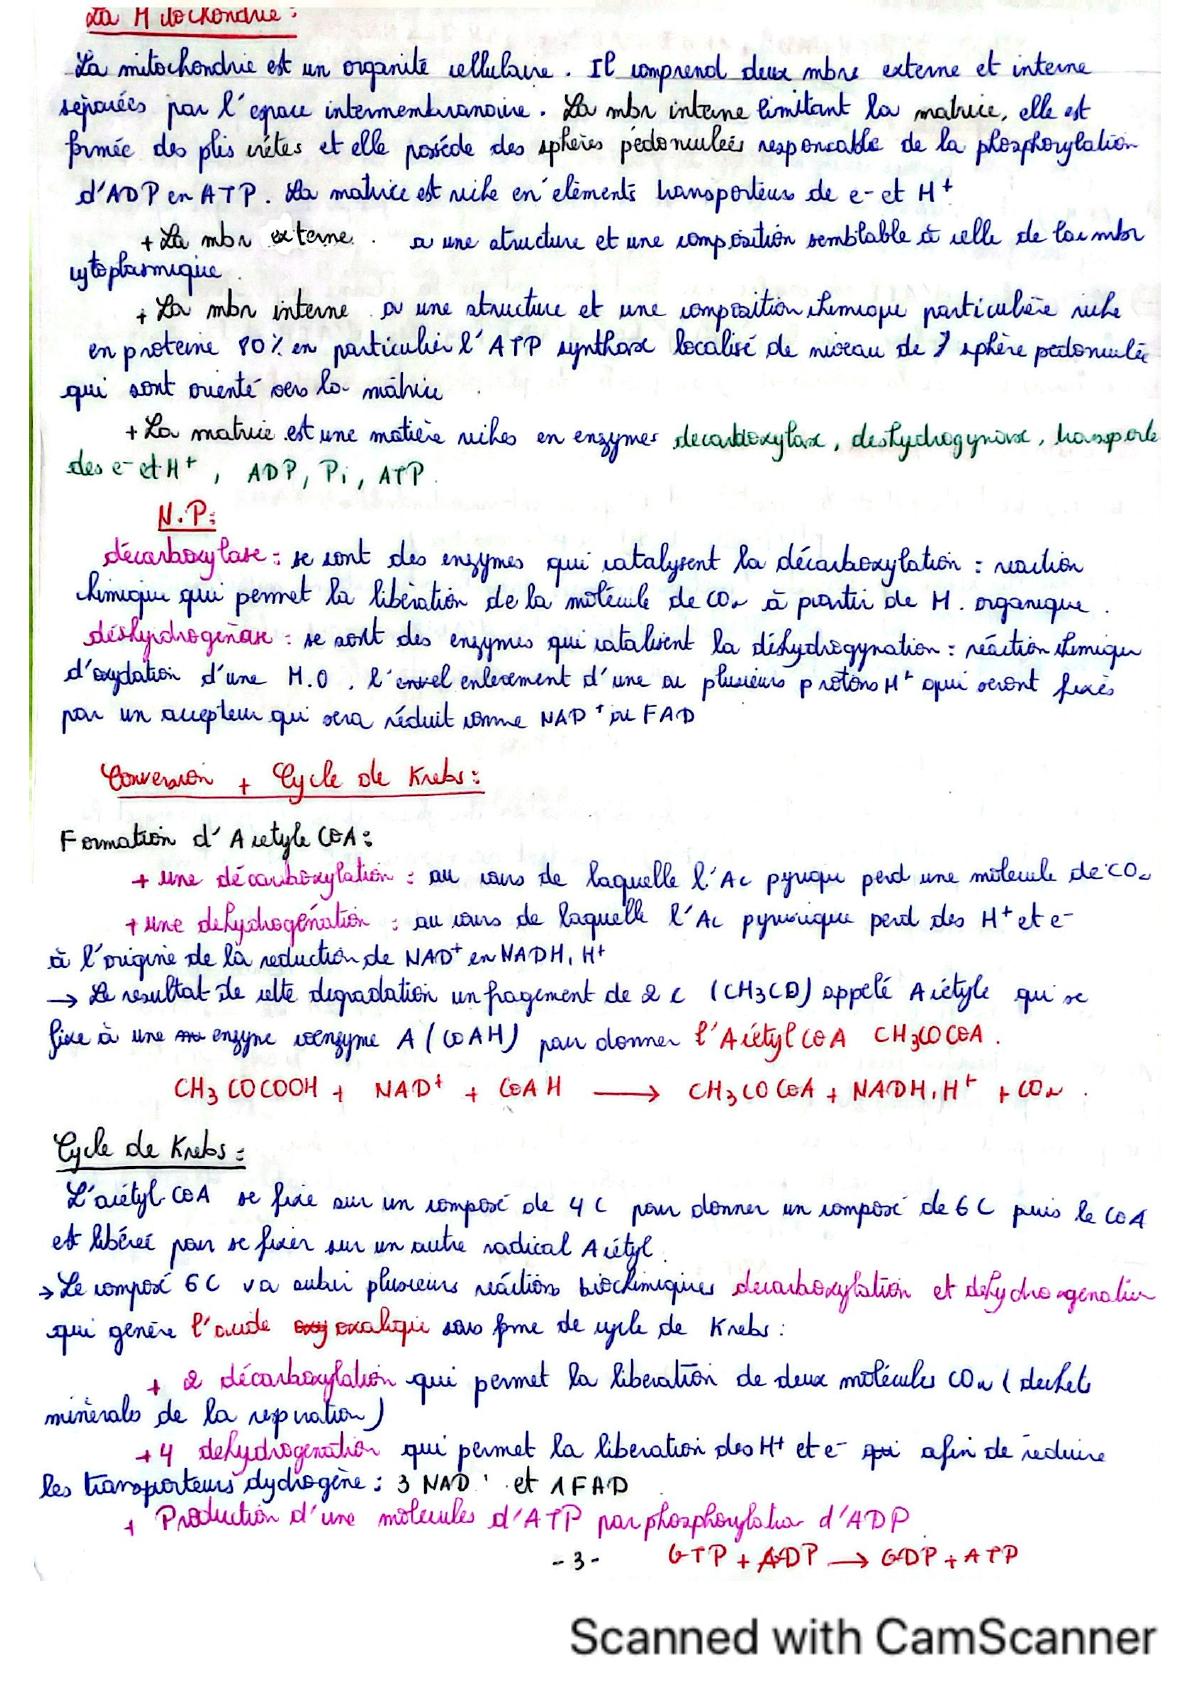 La Mitochondrie :
La mitochondrie est un organite cellulaire. Il comprend deux mbre externe et interne
séparées par l'epace intermembranoire. La mbr interne limitant la matrice, elle est
formée des plis crêtes et elle posséde des sphères pédonculées responcable de la phosphorylation
d'ADP en ATP. La matrice est riche en éléments transporteur de e- et H+
+ La mbr externe. a une structure et une composition semblable à celle de la mbr
cytoplasmique.
+ La mbr interne a une structure et une composition chimique particulière riche
en proteine 80% en particulier l'ATP synthase localisé de niveau de sphère pedonculée
qui sont orienté vers la matrice
+ La matrice est une matière riches en enzymes decarboxylase, deshydrogynase, transporte
des e- et H+, ADP, Pi, ATP.
N.P:
décarboxylase : se sont des enzymes qui catalysent la décarboxylation : reaction
chimique qui permet la libération de la molécule de CO2 à partir de M. organique.
déshydrogénase : se sont des enzymes qui catalisent la déshydrogynation : réaction chimique
d'oxydation d'une M.O, l'enlevement d'une ou plusieurs protons H+ qui seront fixés
par un accepteur qui sera réduit comme NAD+ ou FAD
Conversion + Cycle de Krebs :
Formation d'Acetyle COA :
+ une décarboxylation : au cours de laquelle l'Ac pyruqu perd une molecule de CO2
+ une dehydrogénation : au cours de laquelle l'Ac pyruvique perd des H+ et e-
à l'origine de la reduction de NAD+ en NADH, H+
→ Le resultat de cette degradation un fragement de 2 C (CH3CO) appelé Acétyle qui se
fixe à une enzyme coenzyme A (COAH) pour donner l'Acétyl COA CH3COCOA.
CH3COCOOH + NAD+ + COAH ⟶ CH3COCOA + NADH, H+ + CO2.
Cycle de Krebs :
L'acétyl COA se fixe sur un composé de 4 C pour donner un composé de 6 C puis le COA
est libérée pour se fixer sur un autre radical Acétyl.
→ Le composé 6C va subir plusieurs réactions biochimiques decarboxylation et déhydrogenation
qui genère l'acide oxalique sous forme de cycle de Krebs :
+ 2 décarboxylation qui permet la liberation de deux molécules CO2 (dechets
minérals de la respiration)
+ 4 dehydrogenation qui permet la liberation des H+ et e- afin de reduire
les transporteurs dydrogène : 3 NAD+ et 1 FAD
+ Production d'une molecules d'ATP par phosphorylation d'ADP
- 3 - GTP + ADP → GDP + ATP
Scanned with CamScanner